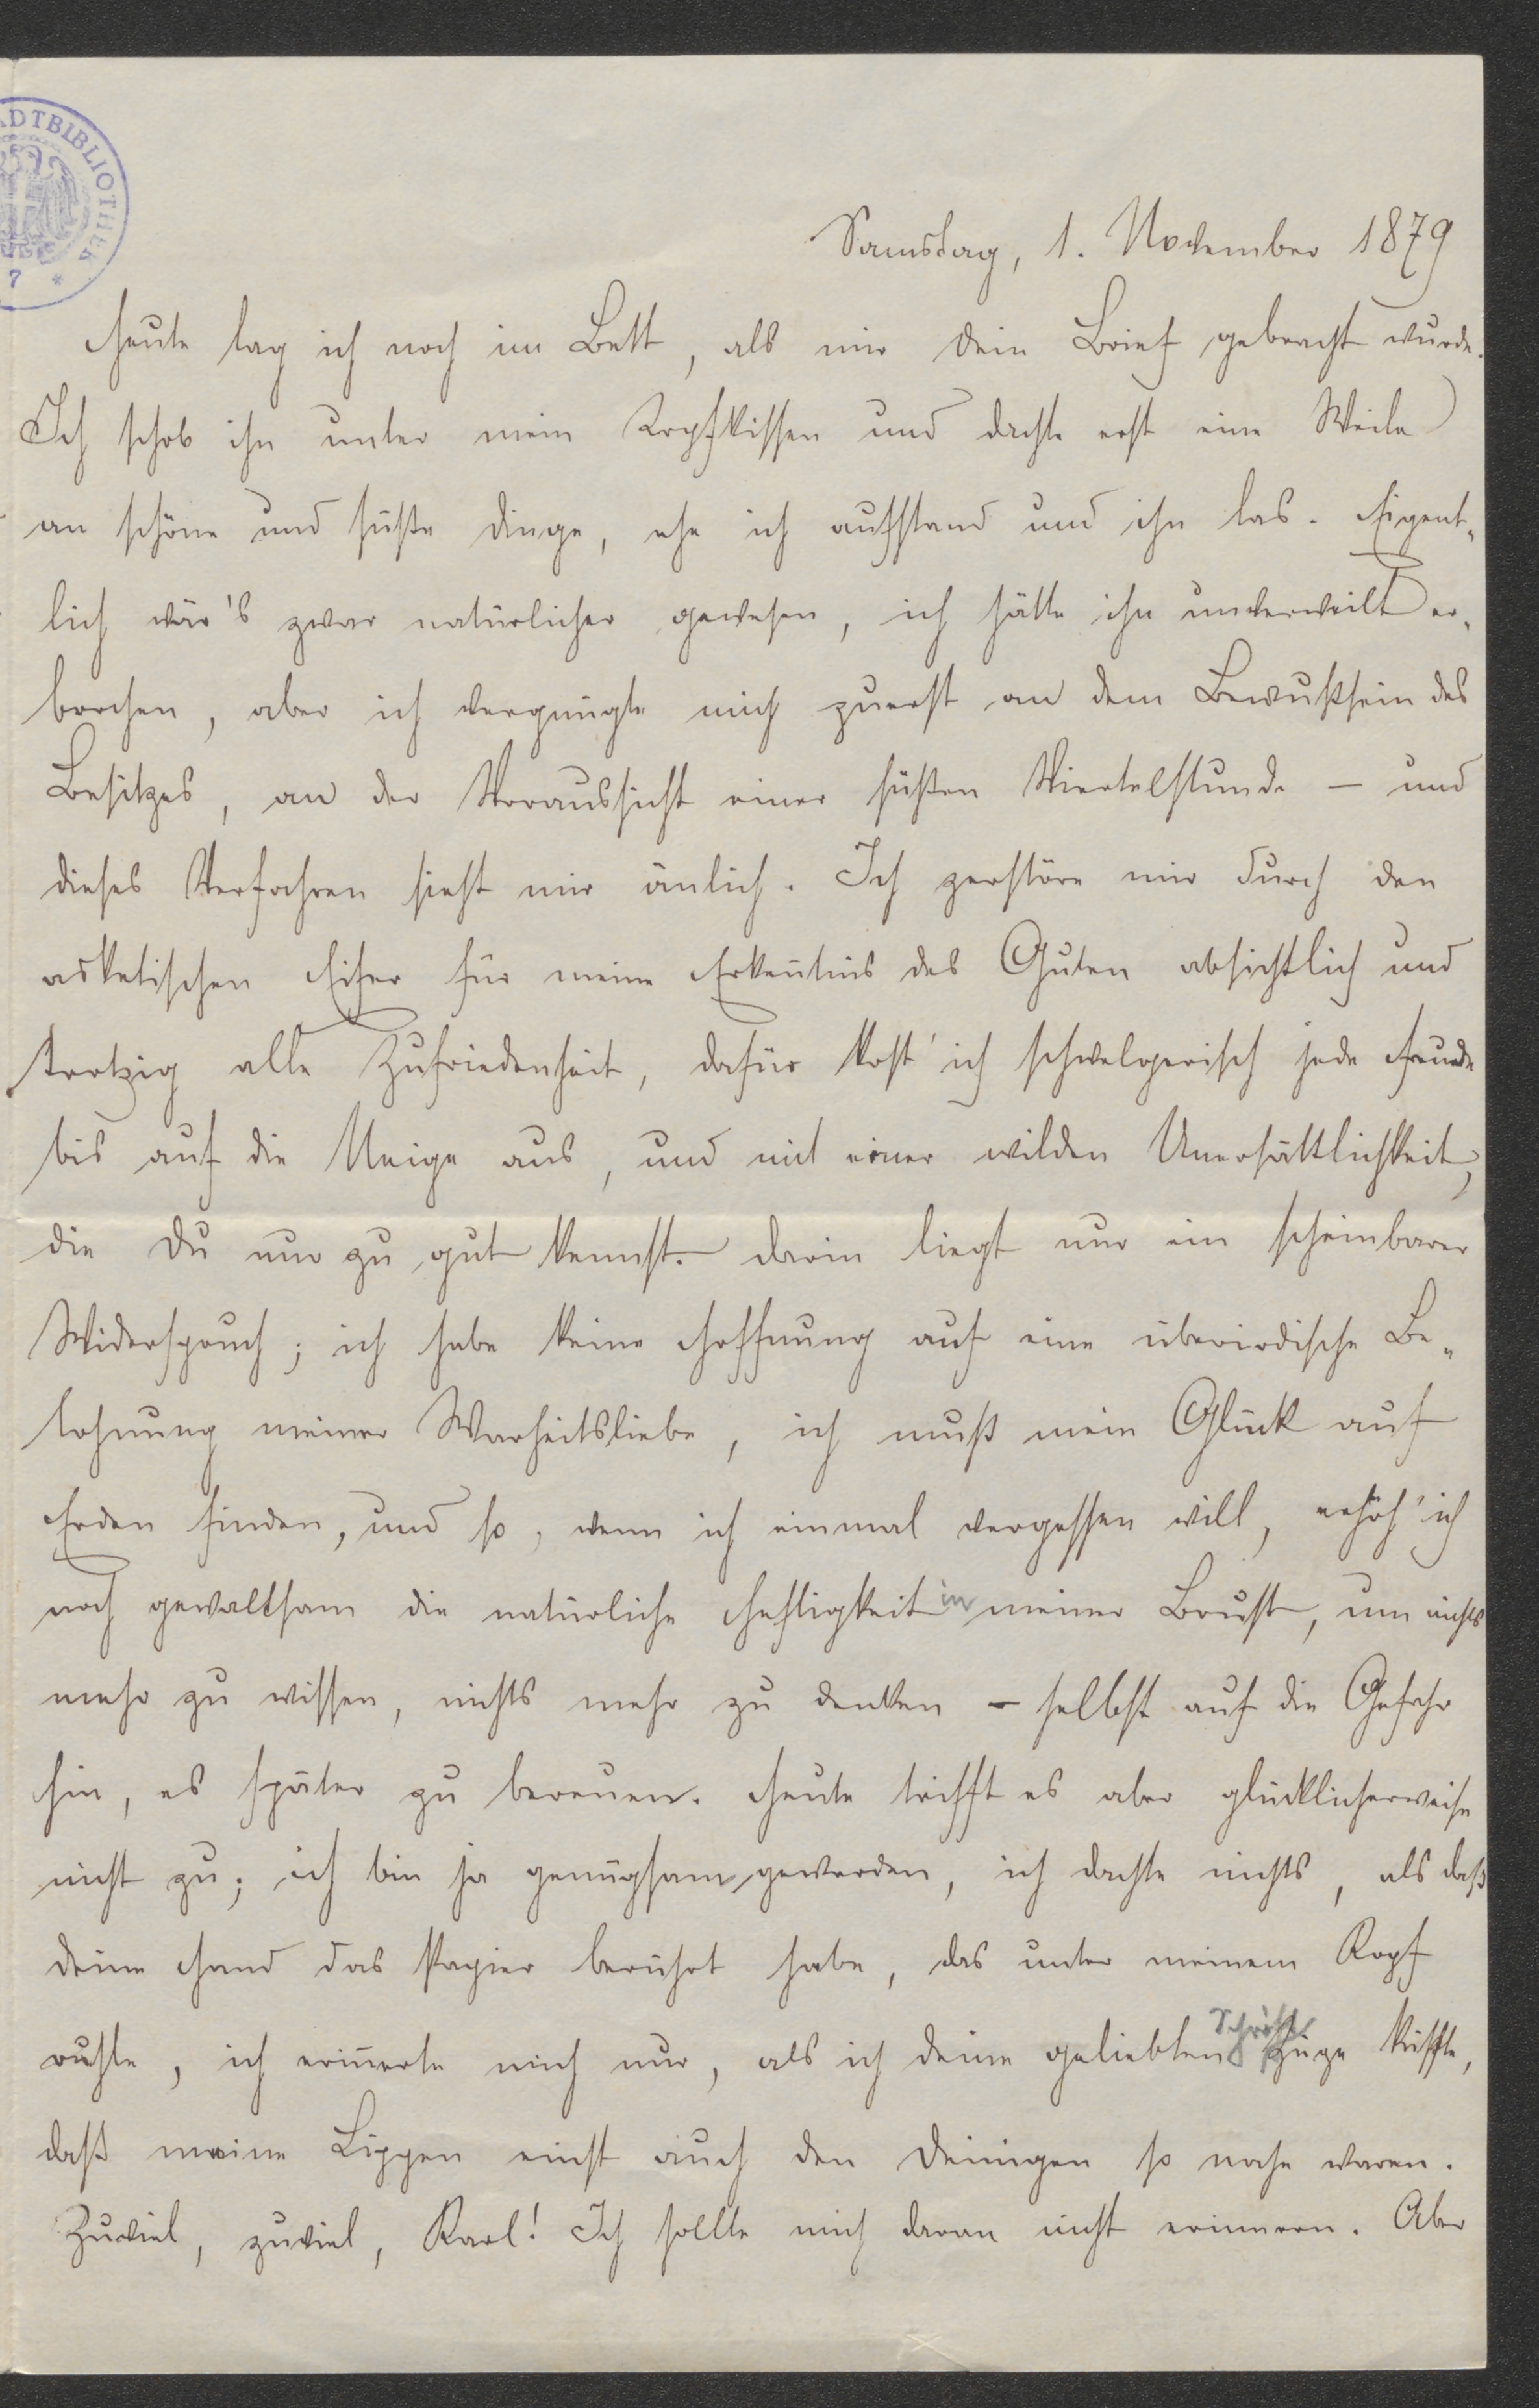 ADTBIBLIOTHEK
7 *
Samstag, 1. November 1879
Heute lag ich noch im Bett, als mir dein Brief gebracht wurde.
Ich schob ihn unter mein Kopfkissen und dachte erst eine Weile
an schöne und süße Dinge, ehe ich aufstand und ihn las. Eigent-
lich wär's zwar natürlicher gewesen, ich hätte ihn unverweilt er-
brochen, aber ich vergnügte mich zuerst an dem Bewußtsein des
Besitzes, an der Voraussicht einer süßen Viertelstunde – und
dieses Verfahren sieht mir änlich. Ich zerstöre mir durch den
asketischen Eifer für meine Erkentnis des Guten absichtlich und
trotzig alle Zufriedenheit, dafür kost' ich schwelgerisch jede Freude
bis auf die Neige aus, und mit einer wilden Unersättlichkeit,
die Du nur zu gut kennst. Darin liegt nur ein scheinbarer
Widerspruch; ich habe keine Hoffnung auf eine überirdische Be-
lohnung meiner Warheitsliebe, ich muß mein Glück auf
Erden finden, und so, wenn ich einmal vergessen will, erhöh' ich
noch gewaltsam die natürliche Heftigkeit in meiner Brust, um nichts
mehr zu wissen, nichts mehr zu denken – selbst auf die Gefahr
hin, es später zu bereuen. Heute trifft es aber glücklicherweise
nicht zu; ich bin ja genügsam geworden, ich dachte nichts, als daß
deine Hand das Papier berührt habe, das unter meinem Kopf
ruhte, ich erinerte mich nur, als ich deine geliebten Schriftzüge küßte,
daß meine Lippen einst auch den Deinigen so nahe waren.
Zuviel, zuviel, Karl! Ich sollte mich daran nicht erinnern. Aber